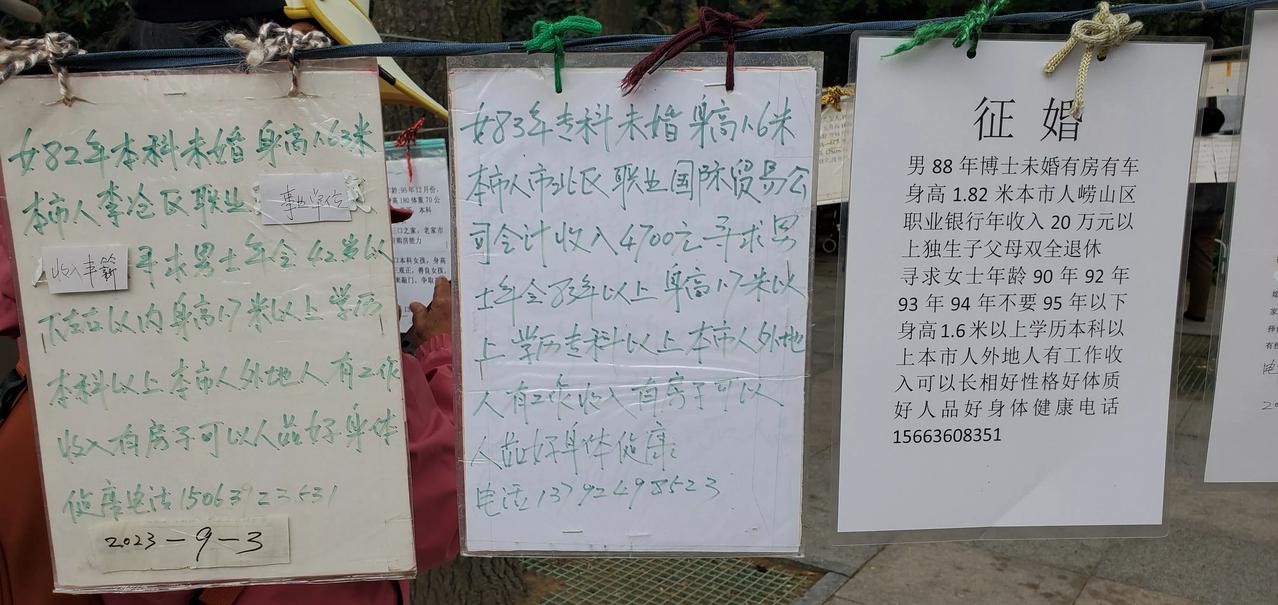 女82年本科未婚身高1.63米
本市人李沧区职业事业单位
收入丰籍寻求男士年令42岁以
下左右以内身高1.7米以上学历
本科以上本市人外地人有工作
收入有房子可以人品好身体
健康电话15063923531
2023-9-3
女83年专科未婚身高1.6米
本市人市北区职业国际贸易公
司会计收入4700元寻求男
士年令83年以上身高1.7米以
上学历专科以上本市人外地
人有工作收入有房子可以
人品好身体健康
电话13792498523
征婚
男88年博士未婚有房有车
身高1.82米本市人崂山区
职业银行年收入20万元以
上独生子父母双全退休
寻求女士年龄90年92年
93年94年不要95年以下
身高1.6米以上学历本科以
上本市人外地人有工作收
入可以长相好性格好体质
好人品好身体健康电话
15663608351